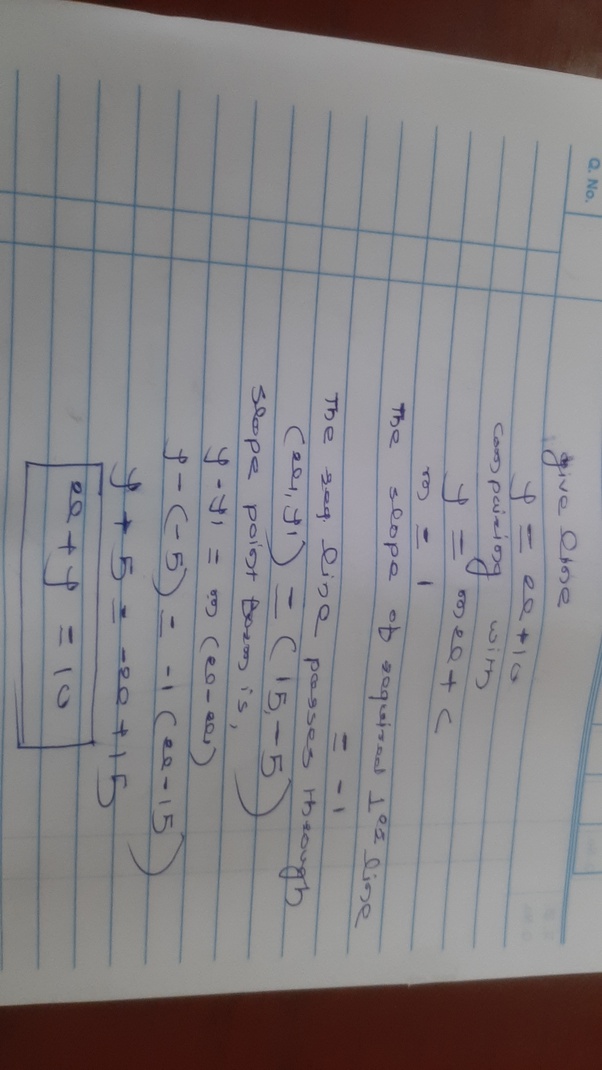 Q. No.
give line
y = x + 10
comparing with
y = mx + c
m = 1
The slope of required ⊥er line
= -1
The req line passes through
(x1, y1) = (15, -5)
Slope point form is,
y - y1 = m (x - x1)
y - (-5) = -1 (x - 15)
y + 5 = -x + 15
x + y = 10